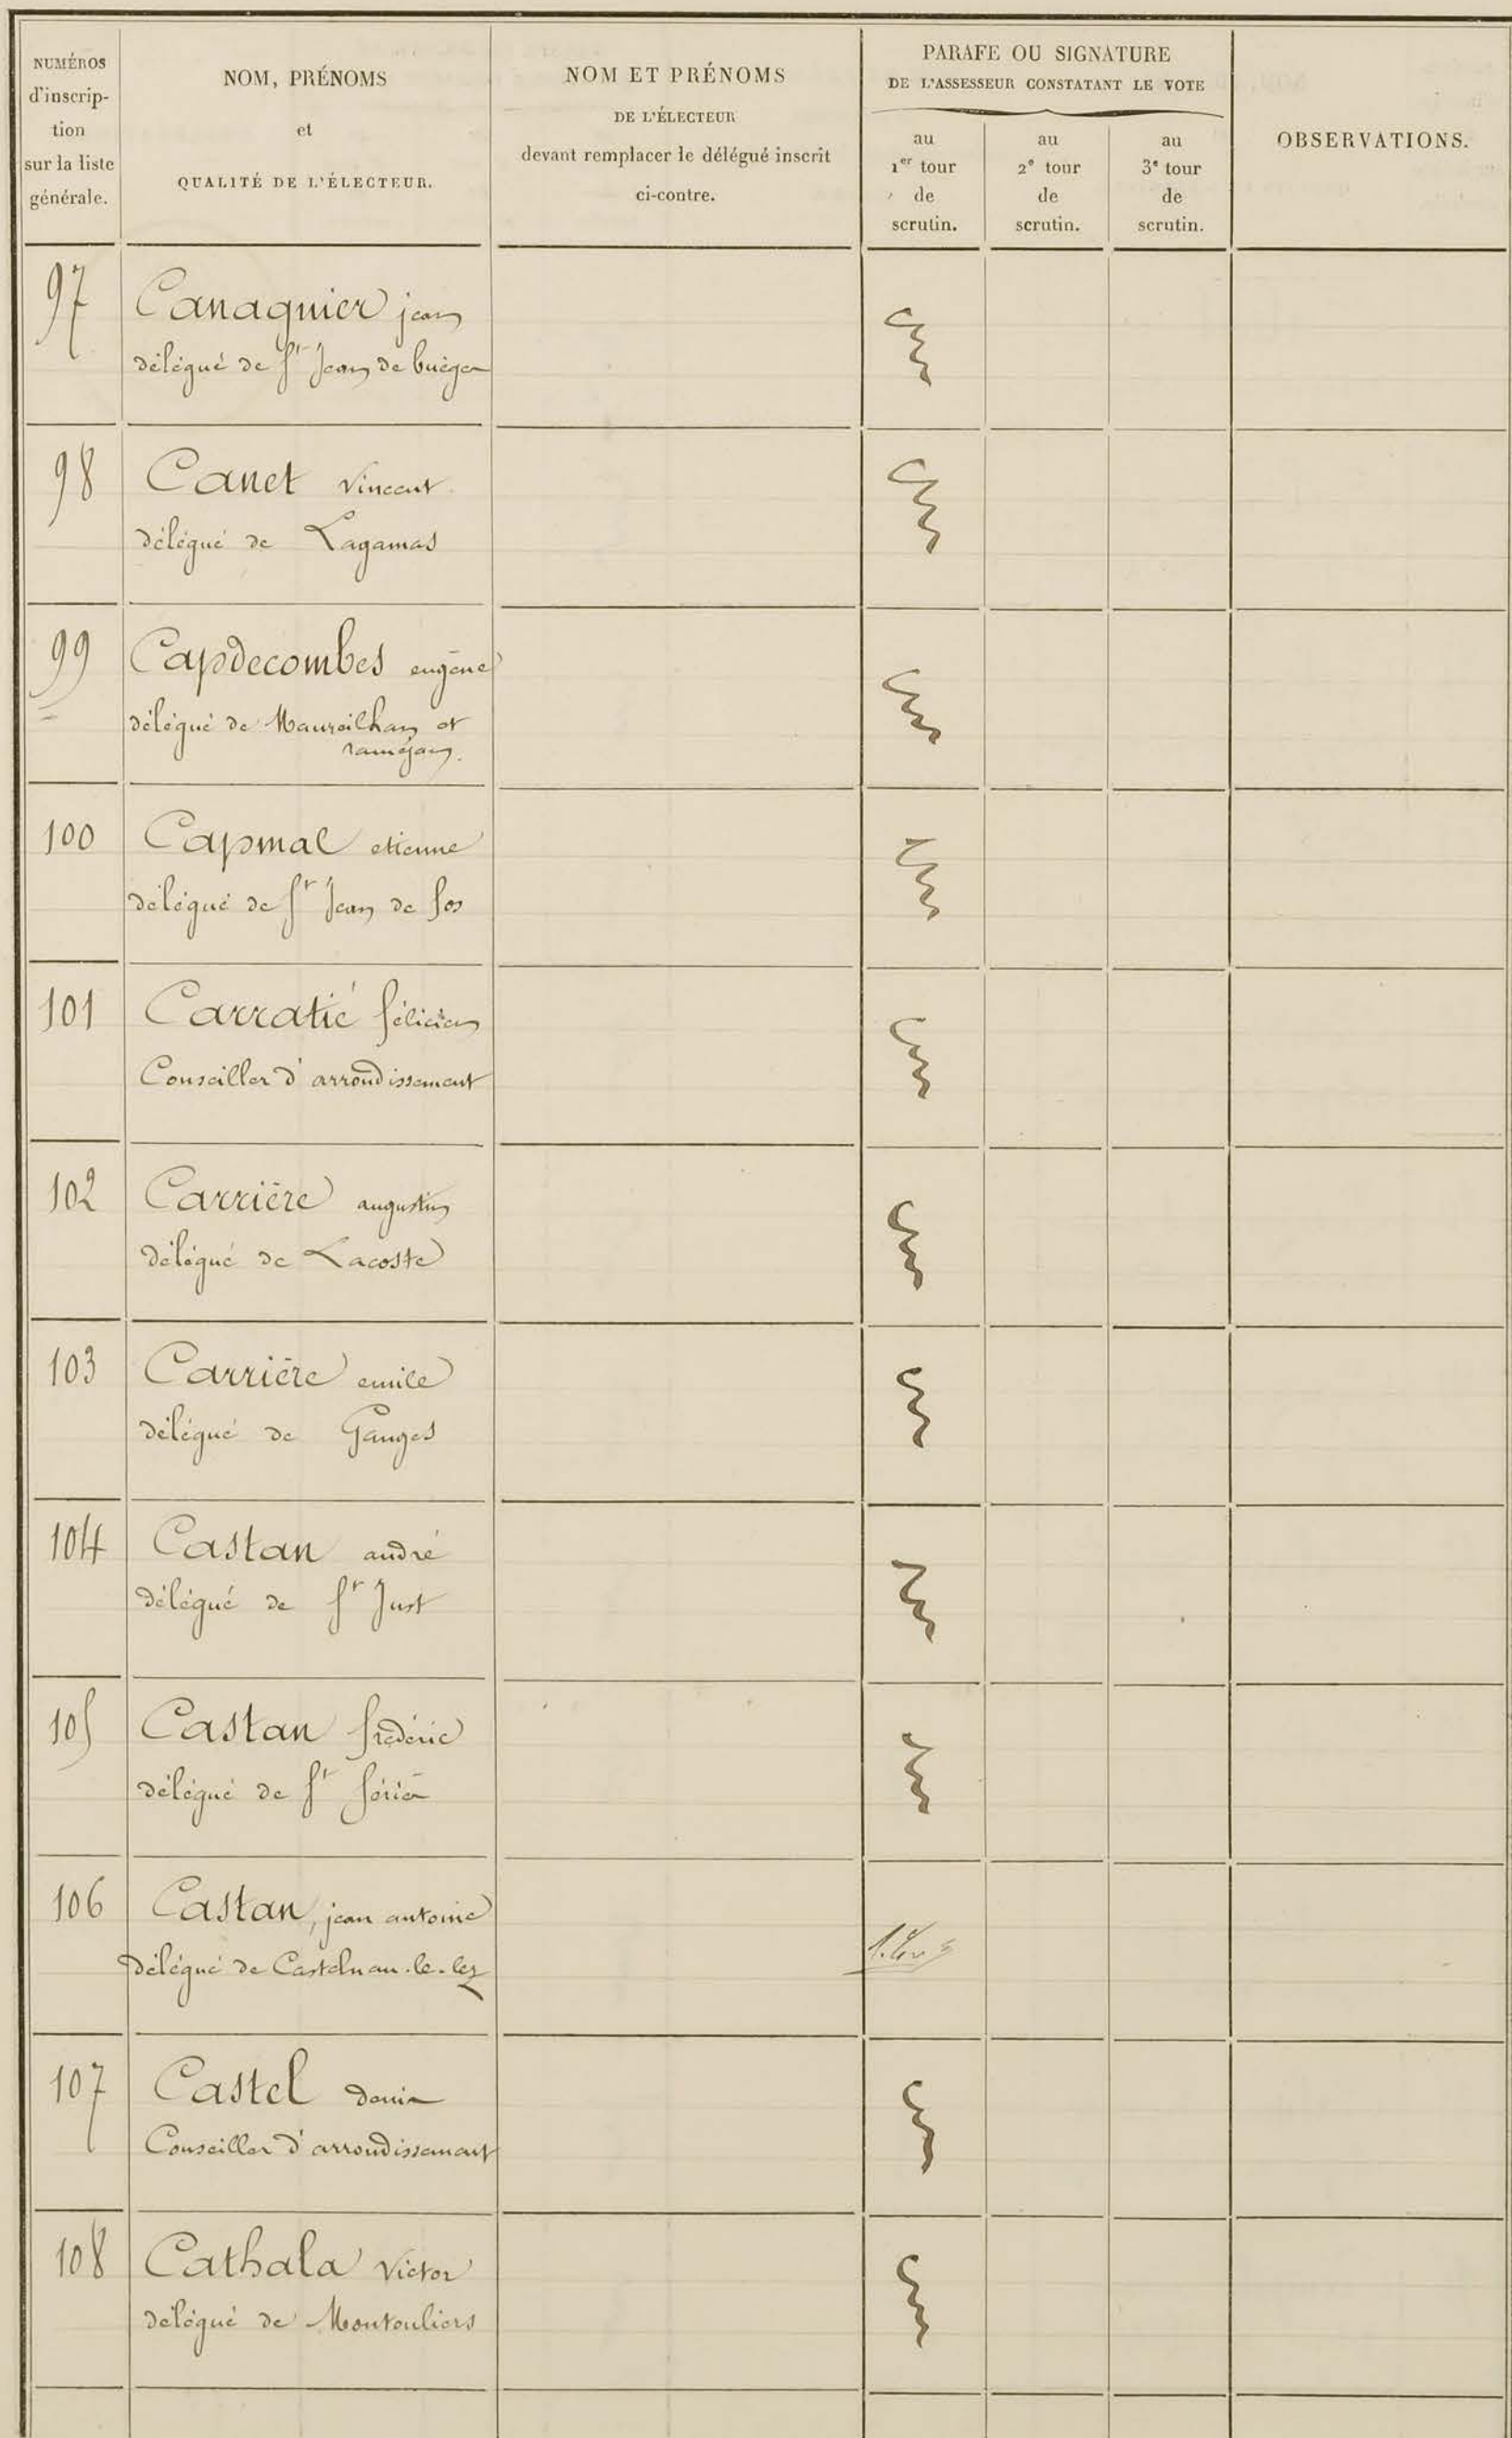 NUMÉROS
d'inscrip-
tion
sur la liste
générale.
NOM, PRÉNOMS
et
QUALITÉ DE L'ÉLECTEUR.
NOM ET PRÉNOMS
DE L'ÉLECTEUR
devant remplacer le délégué inscrit
ci-contre.
PARAFE OU SIGNATURE
DE L'ASSESSEUR CONSTATANT LE VOTE
au
1er tour
de
scrutin.
au
2e tour
de
scrutin.
au
3e tour
de
scrutin.
OBSERVATIONS.
97 Canaguier jean
délégué de St Jean de buèges
98 Canet Vincent
délégué de Lagamas
99 Capdecombes eugène
délégué de Maureilhan et
raméjan.
100 Capmal etienne
délégué de St Jean de fos
101 Carratié félicien
Conseiller d'arrondissement
102 Carrière augustin
délégué de Lacoste
103 Carrière emile
délégué de Ganges
104 Castan andré
délégué de St Just
105 Castan frédéric
délégué de St Sériès
106 Castan, jean antoine
délégué de Castelnau-le-lez
107 Castel Denis
Conseiller d'arrondissement
108 Cathala Victor
délégué de Montouliers